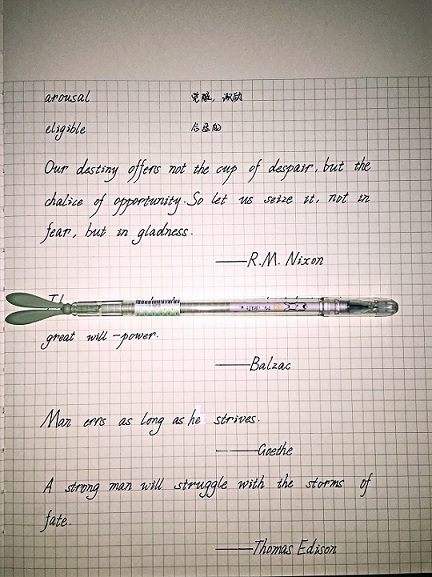 arousal 觉醒，激动
eligible 合适的
Our destiny offers not the cup of despair, but the
chalice of opportunity. So let us seize it, not in
fear, but in gladness.
——R.M. Nixon
great will-power.
——Balzac
Man errs as long as he strives.
——Goethe
A strong man will struggle with the storms of
fate.
——Thomas Edison